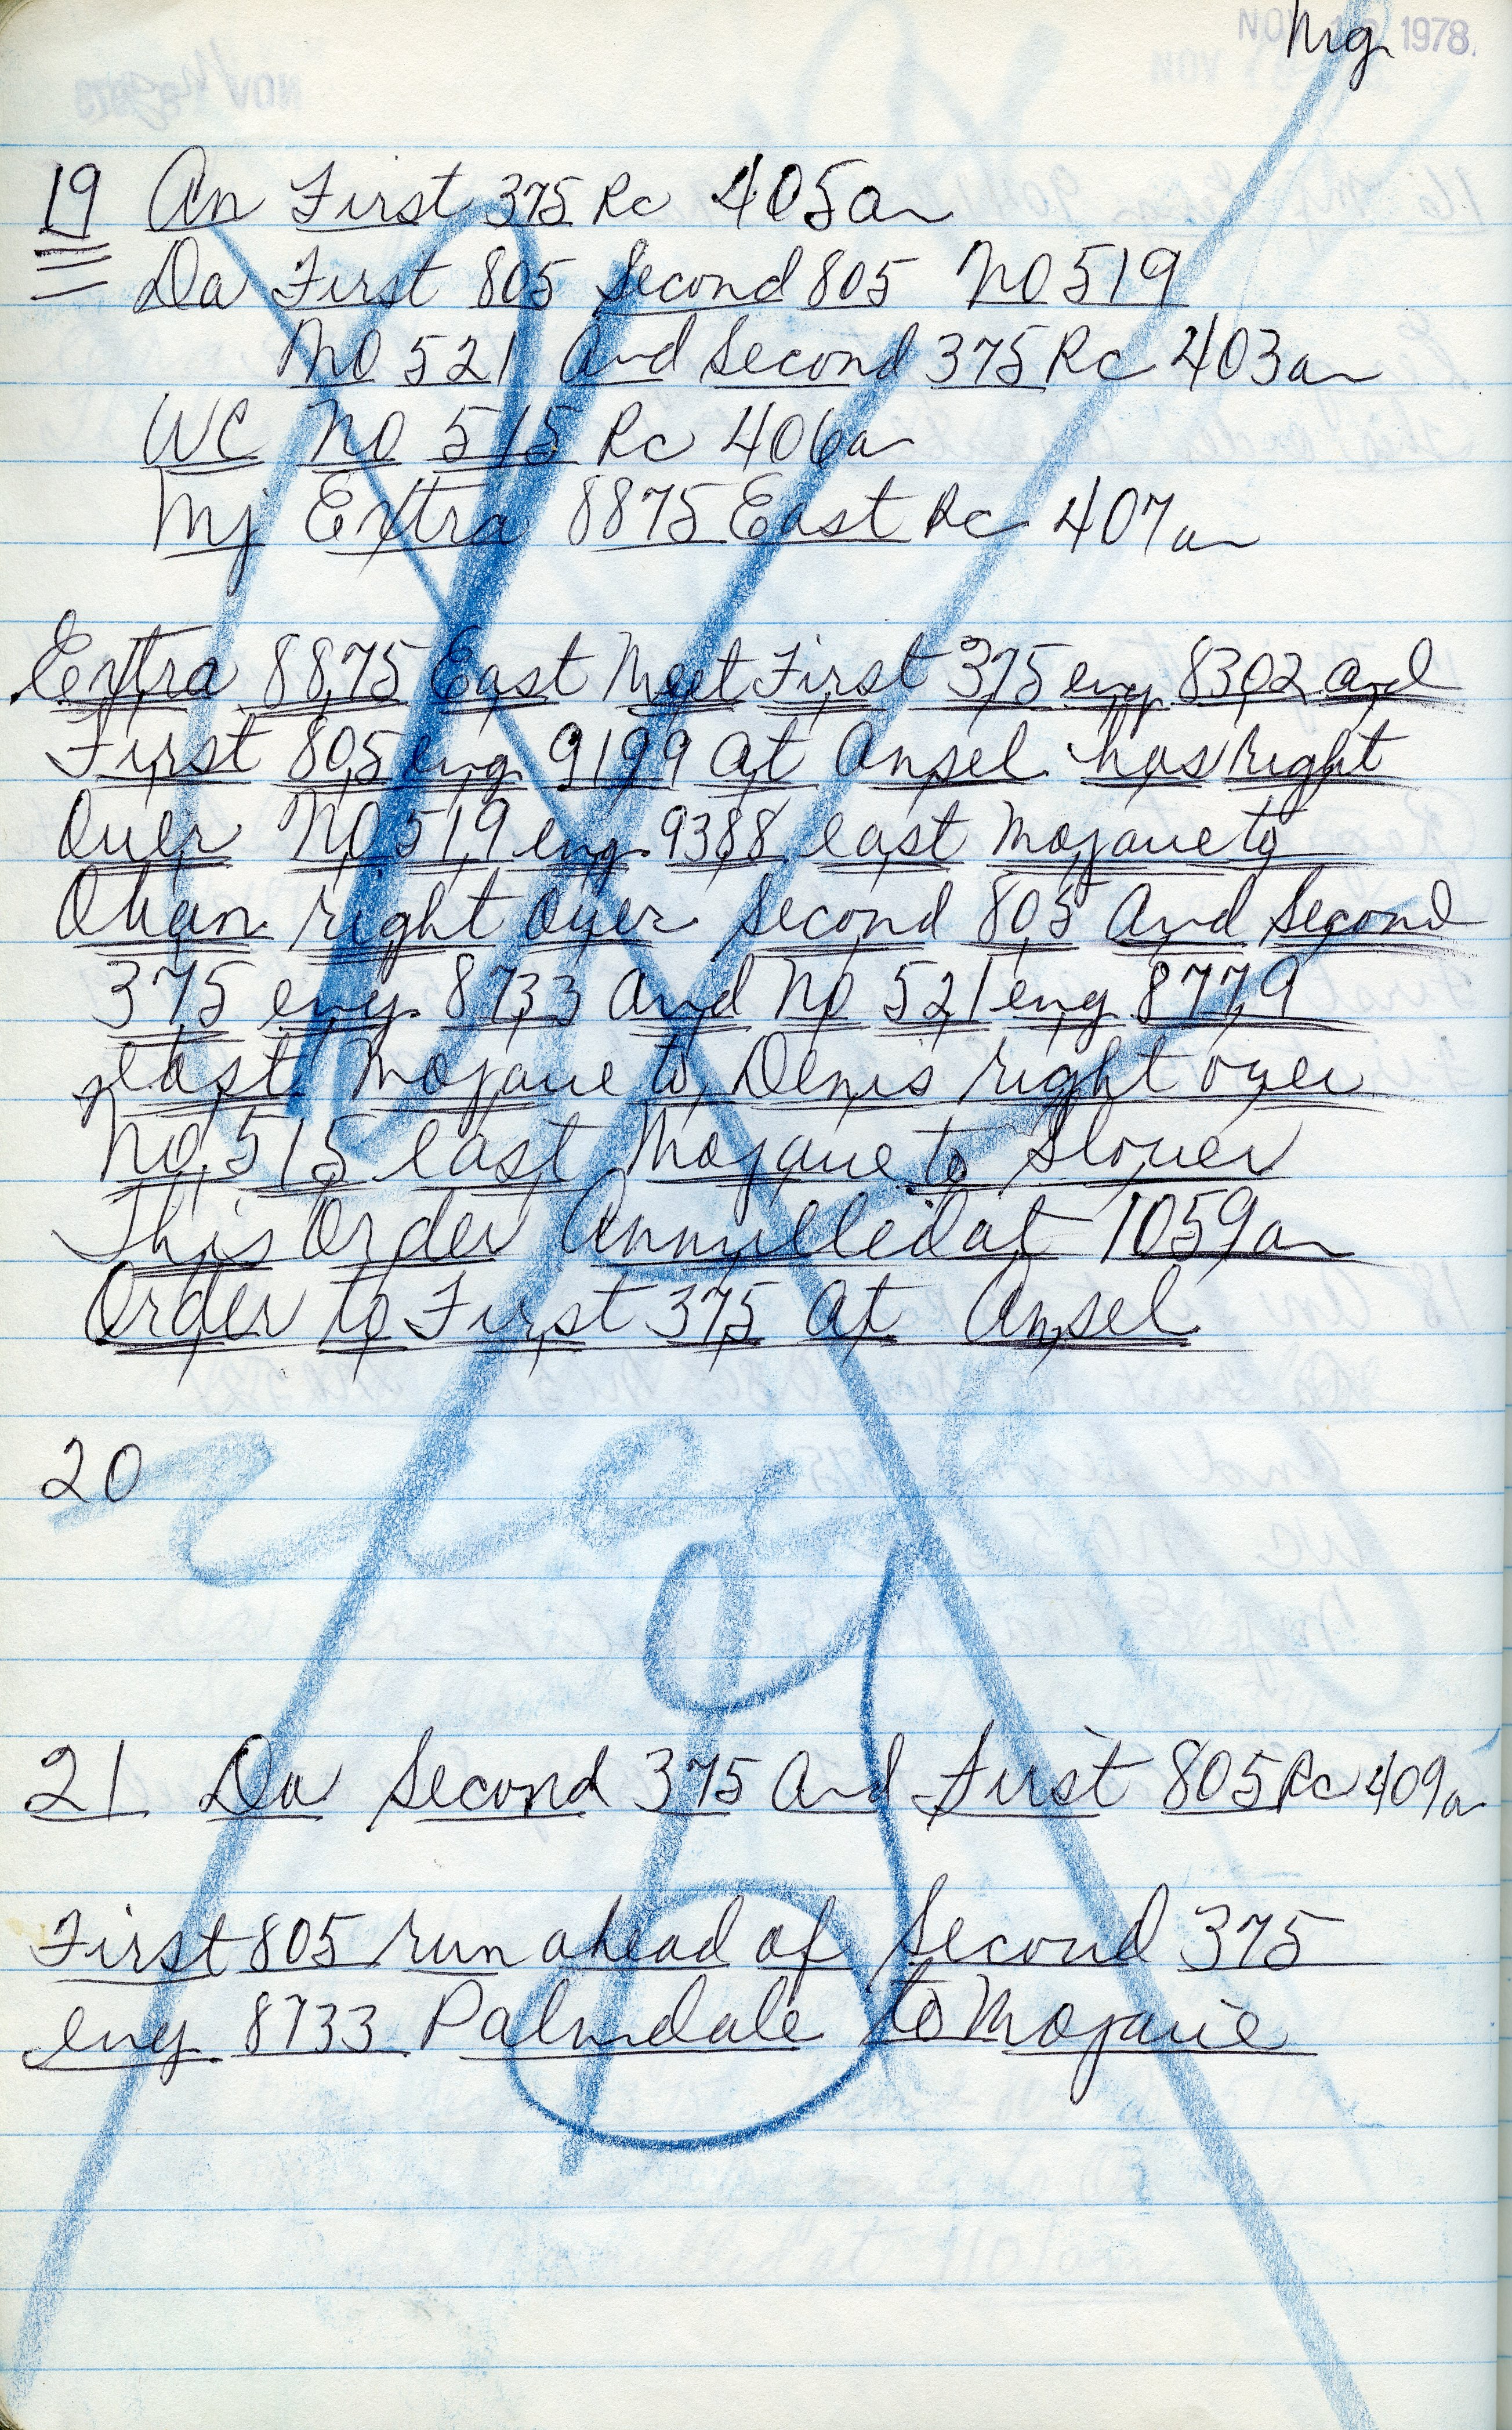 NOV 1978
mg
19 An First 375 Rc 405am
Da First 805 Second 805 No 519
No 521 And Second 375 Rc 403am
WC No 515 Rc 406am
Mj Extra 8875 East Rc 407am
Extra 8875 East Meet First 375 eng 8302 and
First 805 eng 9199 at Ansel has right
Over No 519 eng 9388 east Mojave to
Oban right over Second 805 And Second
375 eng 8733 and No 521 eng 8779
east Mojave to Denis right over
No 515 east Mojave to Slover
This Order Annulled at 1059am
Order to First 375 At Ansel
20
21 Da Second 375 And First 805 Rc 409am
First 805 run ahead of Second 375
eng 8733 Palmdale to Mojave